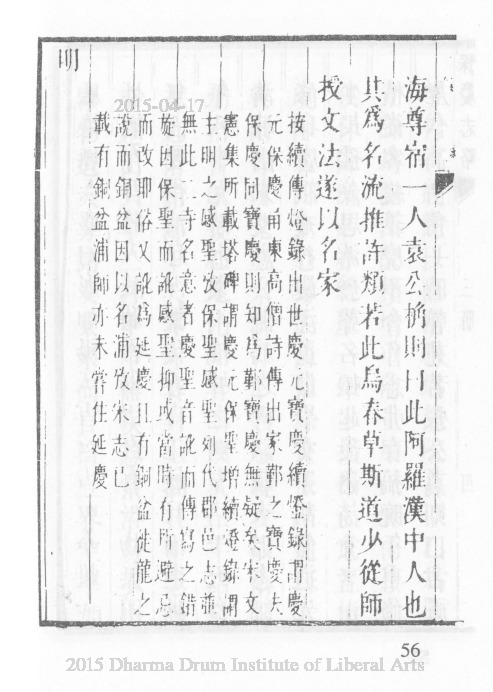 海尊宿一人袁公桷則曰此阿羅漢中人也
其為名流推許類若此烏春草斯道少從師
授文法遂以名家
按續傳燈錄出世慶元寶慶續燈錄謂慶
元保慶甬東高僧詩傳出家鄞之寶慶夫
保慶同寶慶則知為鄞寶慶無疑矣宋文
憲集所載塔碑謂慶元保聖增續燈錄謂
主明之感聖攷保聖感聖列代郡邑志並
無此二寺名意者慶聖音訛而傳寫之錯
旋因保聖而訛感聖抑或當時有所避忌
而改耶俗又訛為延慶且有銅盆徙龍之
說而銅盆因以名浦攷宋志已
載有銅盆浦師亦未嘗住延慶
明
2015-04-17
56
2015 Dharma Drum Institute of Liberal Arts